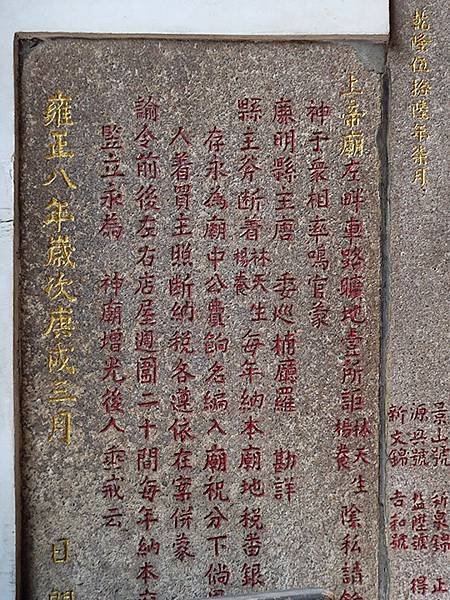 乾隆伍拾陸年柒月
景山號
源興號
新文錦
祈泉錦
益陞號
吉和號
正
得
上帝廟左畔車路曠地壹所詎林天生楊養陰私請
神于衆相率鳴官蒙
廉明縣主唐 委巡捕廳羅 勘詳
縣主斧斷着林天生楊養每年納本廟地稅番銀
存永為廟中公費餉名編入廟祝分下倘
人着買主照斷納稅各遵依在案併蒙
諭令前後左右店屋週圍二十間每年納本
竪立永為 神廟增光後人垂戒云
雍正八年歲次庚戌三月 日